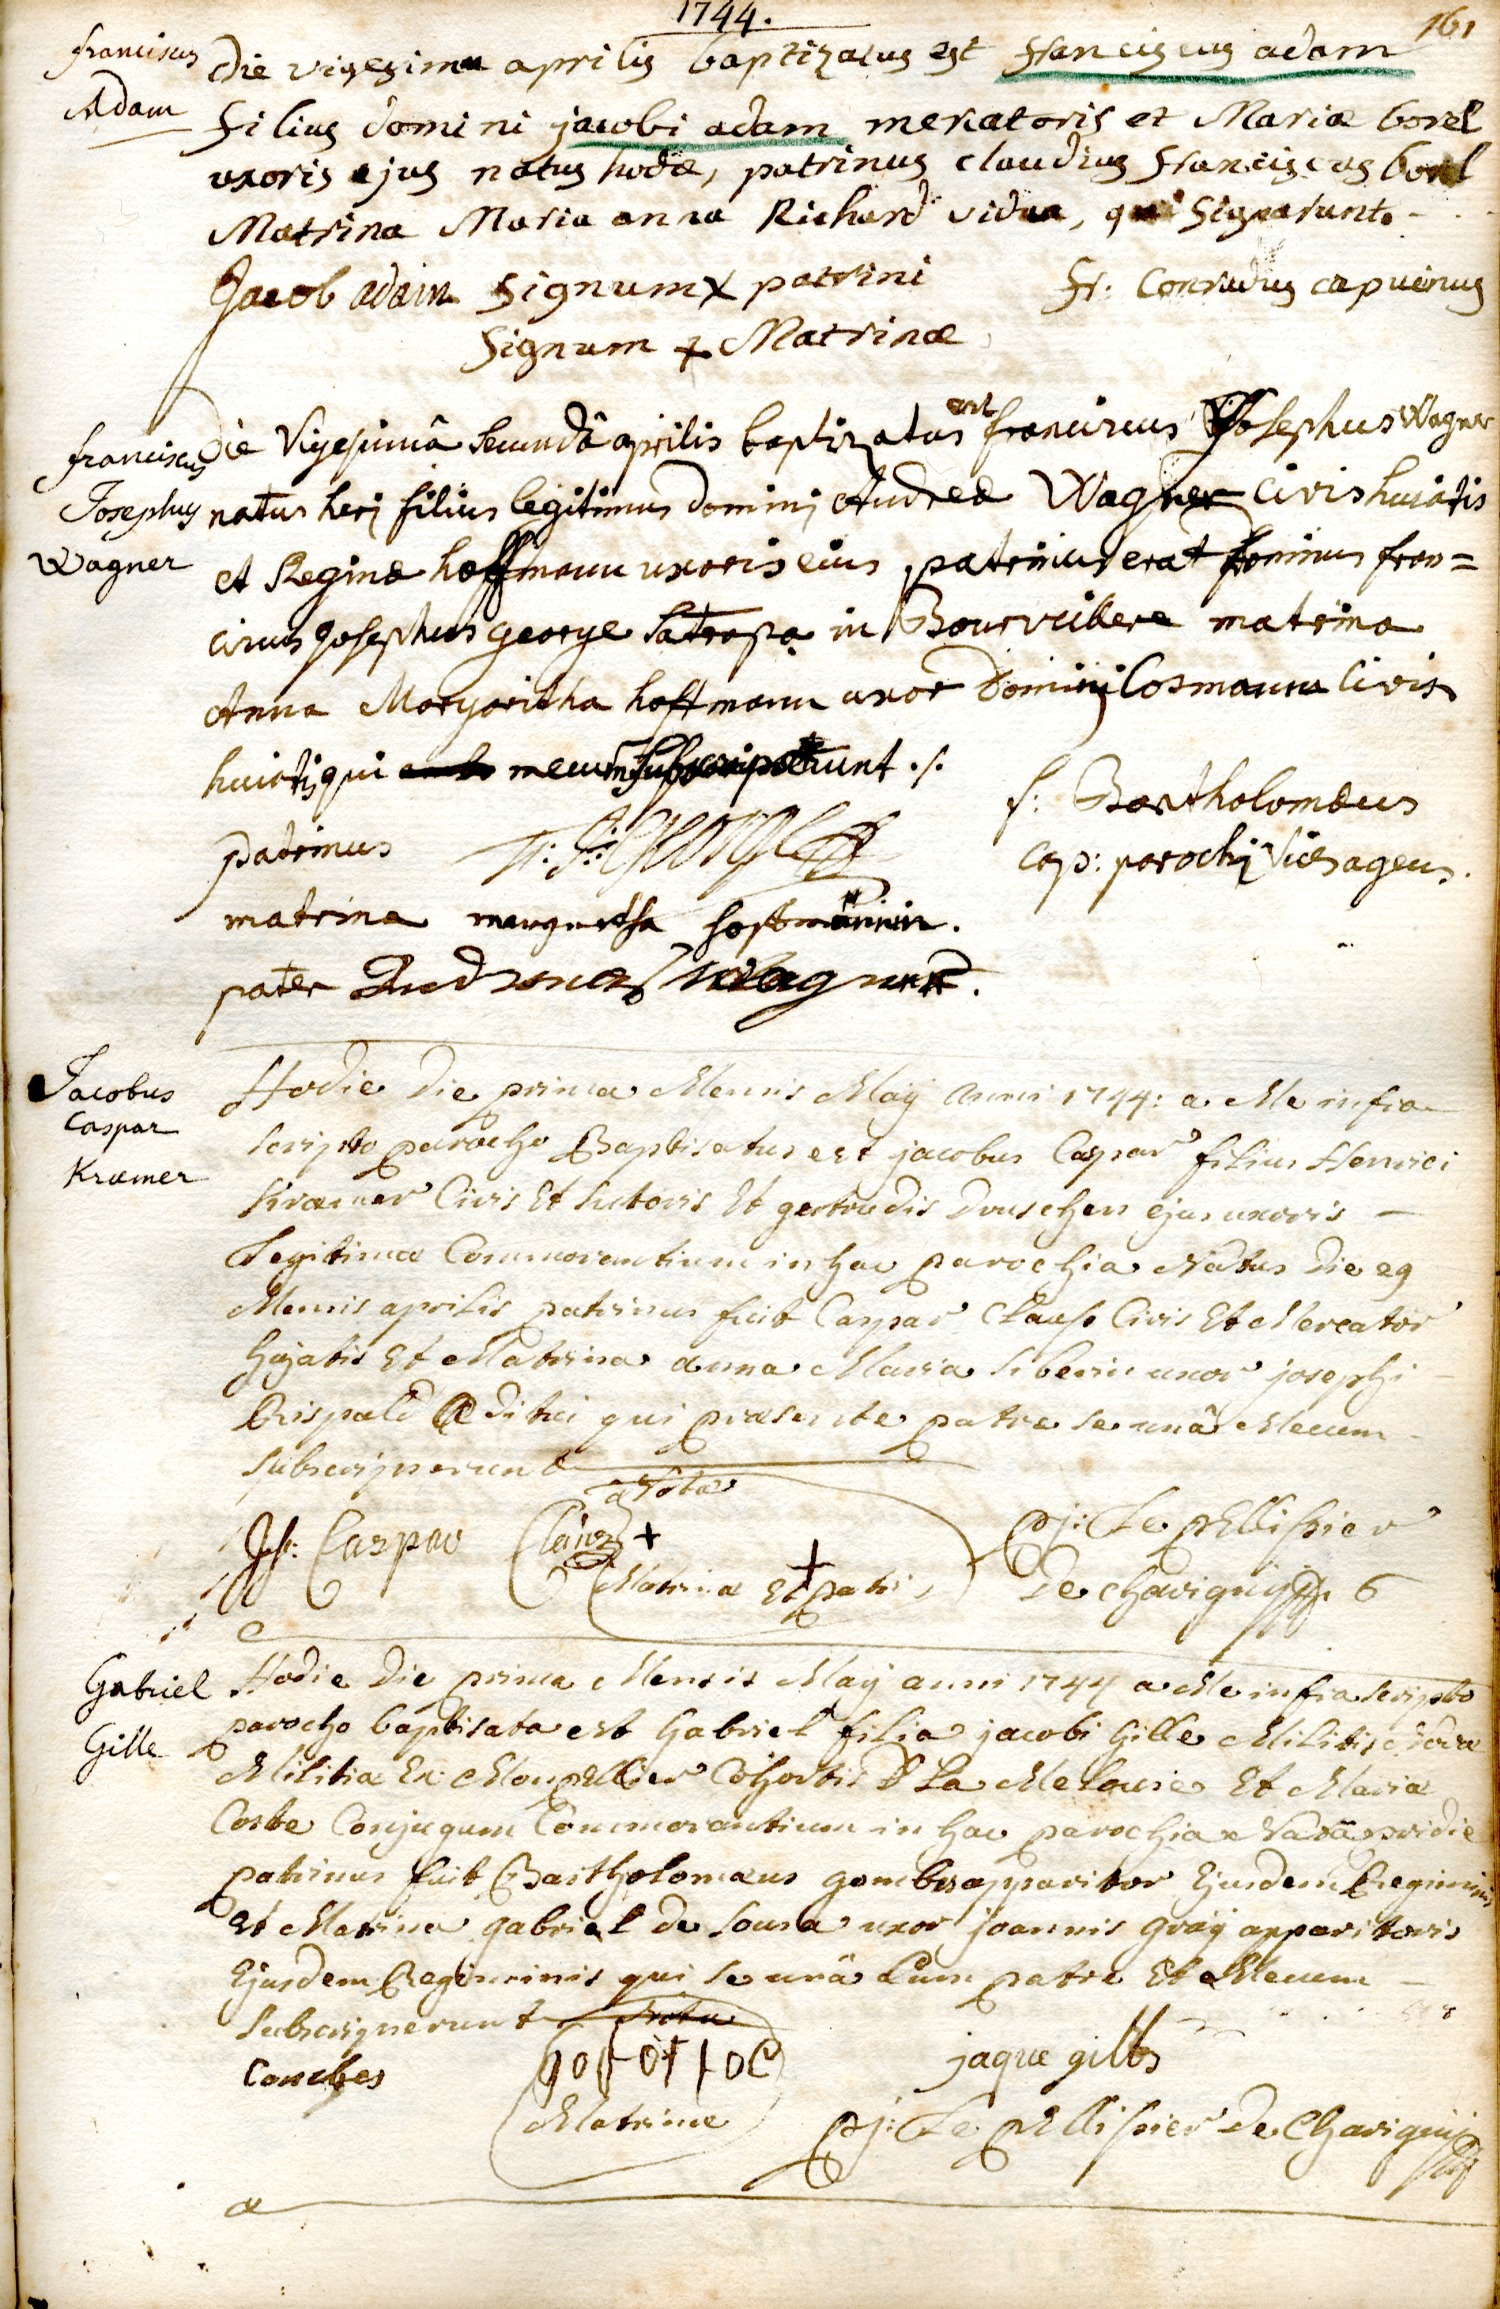 1744.
161
franciscus
Adam
Die vigesima aprilis baptizatus est franciscus adam
filius domini jacobi adam mercatoris et Mariæ borel
uxoris ejus natus hodie, patrinus claudius franciscus borel
Matrina Maria anna Richard vidua, qui signarunt.
Jacob adam signum x patrini fr: Conradus capucinus
signum + Matrinæ
franciscus
Josephus
Wagner
die Vigesimâ secundâ aprilis baptizatus est franciscus Josephus Wagner
natus heri filius legitimus dominj Andreæ Wagner Civis huiatis
et Reginæ hoffmann uxoris eius patrinus erat dominus fran=
ciscus Josephus george satrapa in Bourvillere matrina
Anna Margaritha hoffmann uxor dominj Cosmann Civis
huiatis qui mecum subscripserunt ./.
patrinus f: Bartholomæus
cap: parochj vices agens.
matrina margretha hofmännin.
pater Andreas Wagner.
Jacobus
Caspar
Kræmer
Hodie die prima Mensis Maÿ Anni 1744: a Me infra
scripto parocho Baptisatus est jacobus Caspar filius Henrici
Kraemer Civis Et sutoris Et gertrudis Druschen ejus uxoris
Legitimæ Commorantium in hac parochia Natus die 29
Mensis aprilis patrinus fuit Caspar Claus Civis Et Mercator
hujatis Et Matrina anna Maria uxor josephi
Æditui qui præsente patre se unâ Mecum
subscripserunt
Nota
Jos: Caspar Clauz +
Matrinæ Et + patris
pj: Le pellissier
De Chavignij
Gabriel
Gille
Hodie die prima Mensis Maÿ anni 1744 a Me infra scripto
parocho baptisata est Gabriel filia jacobi Gille Militis
Militiæ Ex Monpellier Cohortis D La Melouse Et Mariæ
Coste Conjugum Commorantium in hac parochia Nata pridie
patrinus fuit Bartholomæus gombes apparitor Ejusdem Regiminis
Et Matrina gabriel de sousa uxor joannis graÿ apparitoris
Ejusdem Regiminis qui se unâ Cum patre Et Mecum
subscripserunt Nota
Combes
jaque gilles
Matrinæ
pj: Le pellissier De Chavignij